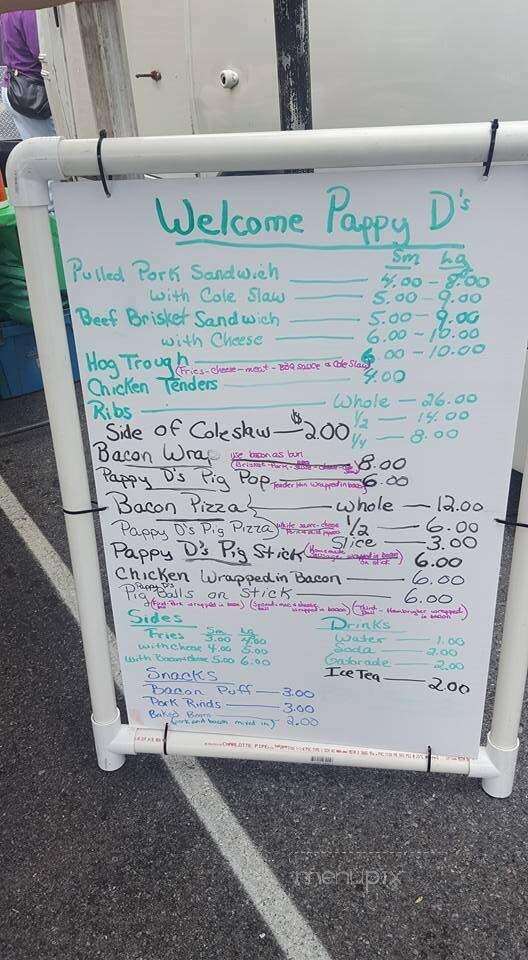 Welcome Pappy D's
Sm Lg
Pulled Pork Sandwich 4.00 - 8.00
with Cole Slaw 5.00 - 9.00
Beef Brisket Sandwich 5.00 - 9.00
with Cheese 6.00 - 10.00
Hog Trough 6.00 - 10.00
(Fries - cheese - meat - BBQ sauce & Cole Slaw)
Chicken Tenders 4.00
Ribs Whole - 26.00
1/2 - 14.00
1/4 - 8.00
Side of Coleslaw - $2.00
Bacon Wrap use bacon as bun 8.00
(Brisket - Pork -
Pappy D's Pig Pop Tenderloin wrapped in bacon 6.00
Bacon Pizza whole - 12.00
Pappy D's Pig Pizza) white sauce - cheese 1/2 - 6.00
Slice - 3.00
Pappy D's Pig Stick (Homemade sausage wrapped in bacon on stick 6.00
Chicken Wrapped in Bacon - 6.00
Pappy D's
Pig Balls on Stick 6.00
(First - Pork wrapped in bacon) (Second - mac & cheese ball wrapped in bacon) (Third - Hamburger wrapped ball in bacon)
Sides
Sm Lg
Fries 3.00 4.00
with cheese 4.00 5.00
with Bacon & cheese 5.00 6.00
Drinks
Water - 1.00
Soda - 2.00
Gatorade - 2.00
Ice Tea - 2.00
Snacks
Bacon Puff - 3.00
Pork Rinds - 3.00
Baked Beans 2.00
(pork and bacon mixed in)
CHARLOTTE PIPE
menupix